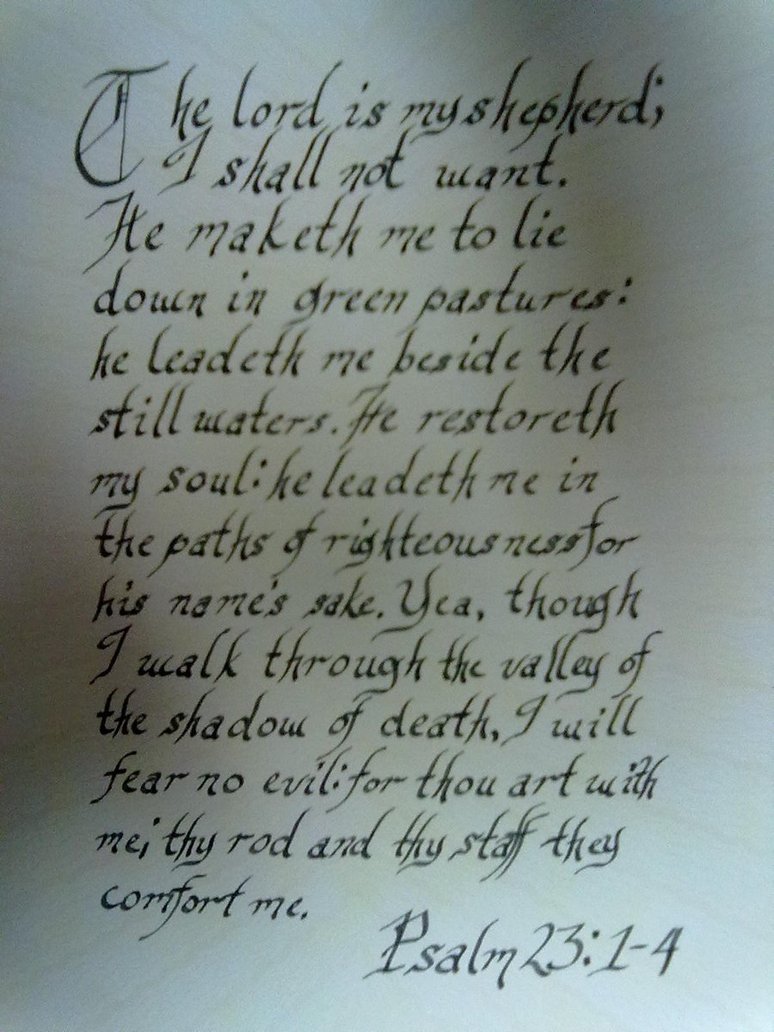 The lord is my shepherd;
I shall not want.
He maketh me to lie
down in green pastures:
he leadeth me beside the
still waters. He restoreth
my soul: he leadeth me in
the paths of righteousness for
his name's sake. Yea, though
I walk through the valley of
the shadow of death, I will
fear no evil: for thou art with
me; thy rod and thy staff they
comfort me.
Psalm 23:1-4